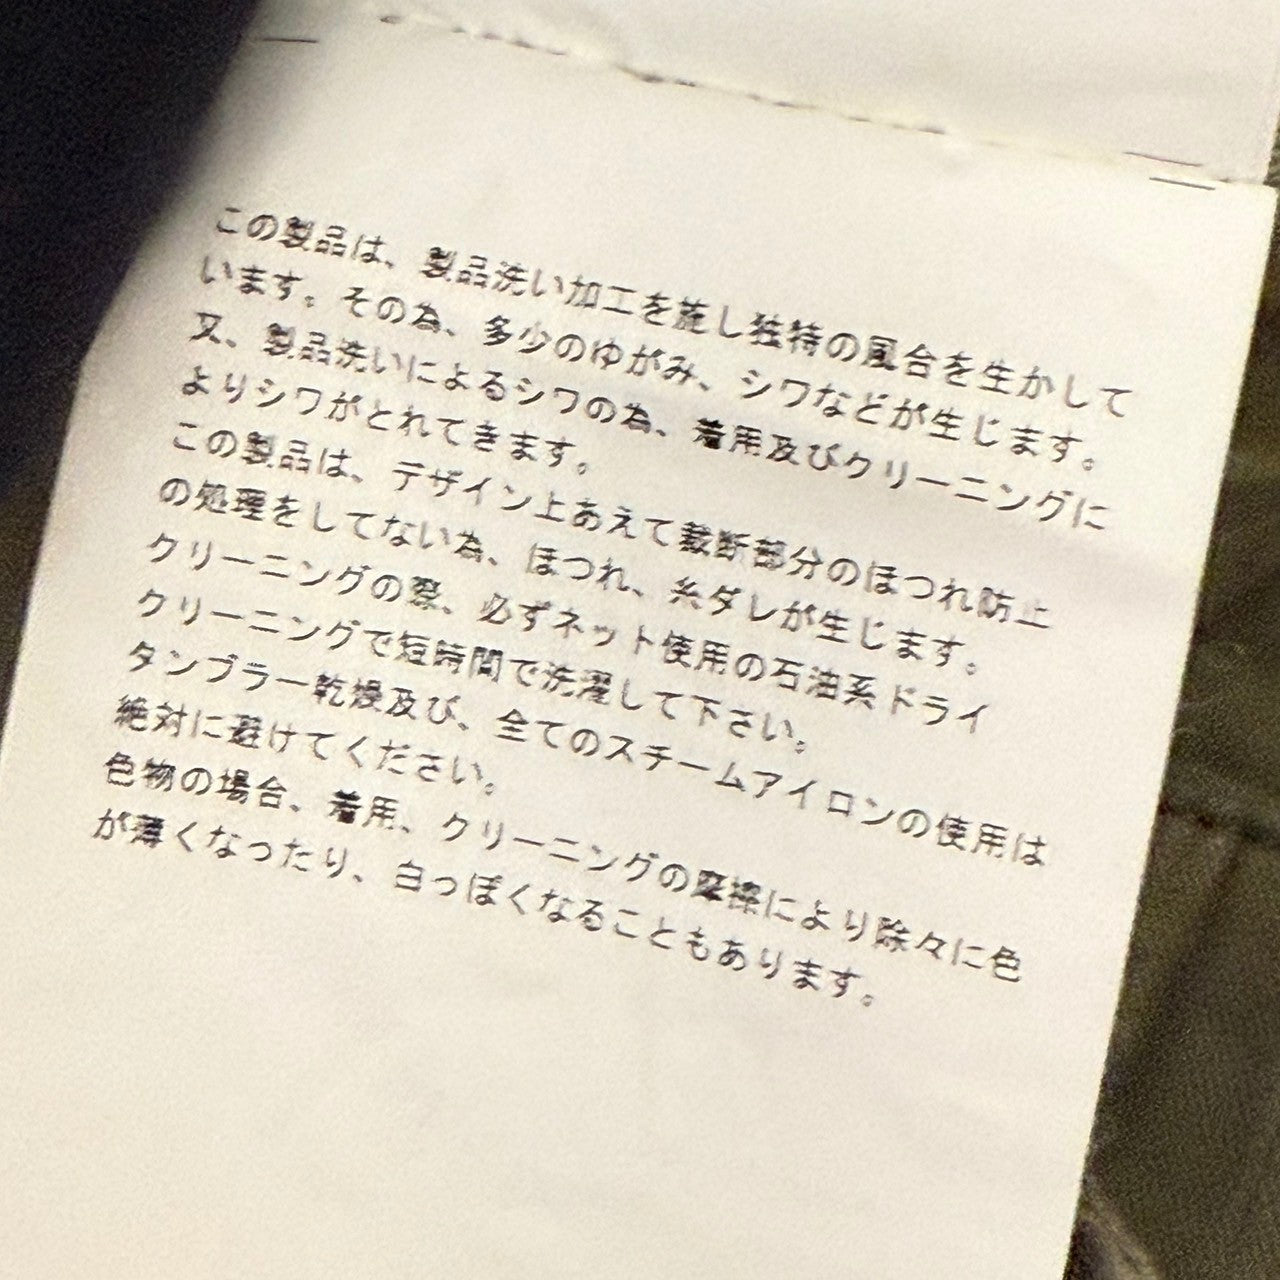 この製品は、製品洗い加工を施し独特の風合を生かして
います。その為、多少のゆがみ、シワなどが生じます。
又、製品洗いによるシワの為、着用及びクリーニングに
よりシワがとれてきます。
この製品は、デザイン上あえて裁断部分のほつれ防止
の処理をしてない為、ほつれ、糸ダレが生じます。
クリーニングの際、必ずネット使用の石油系ドライ
クリーニングで短時間で洗濯して下さい。
タンブラー乾燥及び、全てのスチームアイロンの使用は
絶対に避けてください。
色物の場合、着用、クリーニングの摩擦により除々に色
が薄くなったり、白っぽくなることもあります。